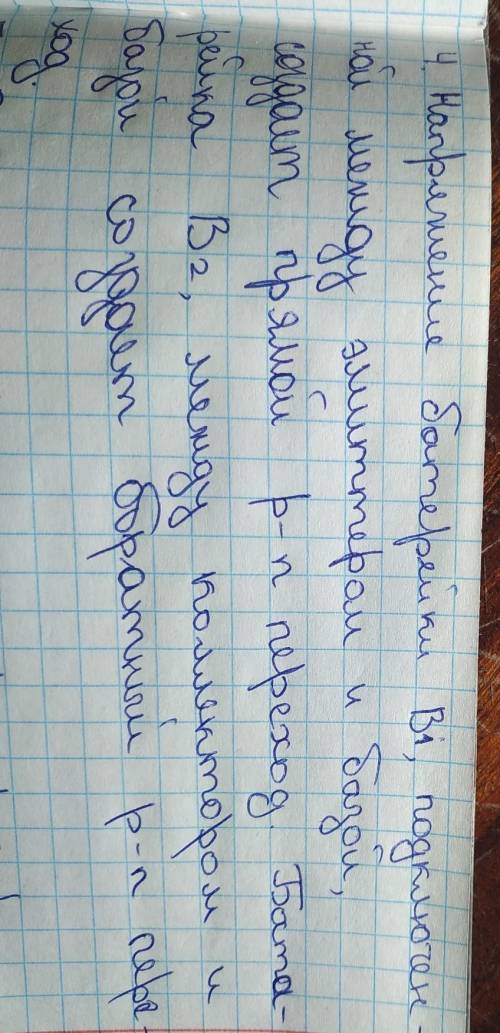 4. Напряжение батерейки B1, подключен-
ной между эмиттером и базой,
создает прямой р-п переход. Бата-
рейка B2, между коллектором и
базой создает обратный р-п пере-
ход.